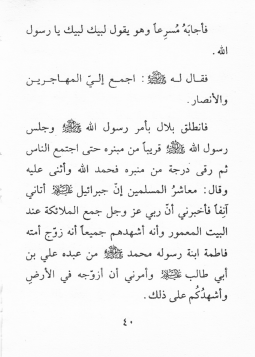 فأجابَهُ مُسرِعاً وهو يقول لبيك لبيك يا رسول
الله.
فقـال لـه ﷺ : اجمـع إليّ المهـاجريـن
والأنصار.
فانطلق بلال بأمر رسول الله ﷺ وجلس
رسول الله ﷺ قريباً من منبره حتى اجتمع الناس
ثم رقى درجة من منبره فحمد الله وأثنى عليه
وقال: معاشرُ المسلمين إنّ جبرائيل أتاني
آنِفاً فأخبرني أنّ ربي عز وجل جمع الملائكة عند
البيت المعمور وأنه أشهدهم جميعاً أنه زوّج أمته
فاطمة ابنة رسوله محمد ﷺ من عبده علي بن
أبي طالب وأمرني أن أزوجه في الأرض
وأشهدُكُم على ذلك.
٤٠